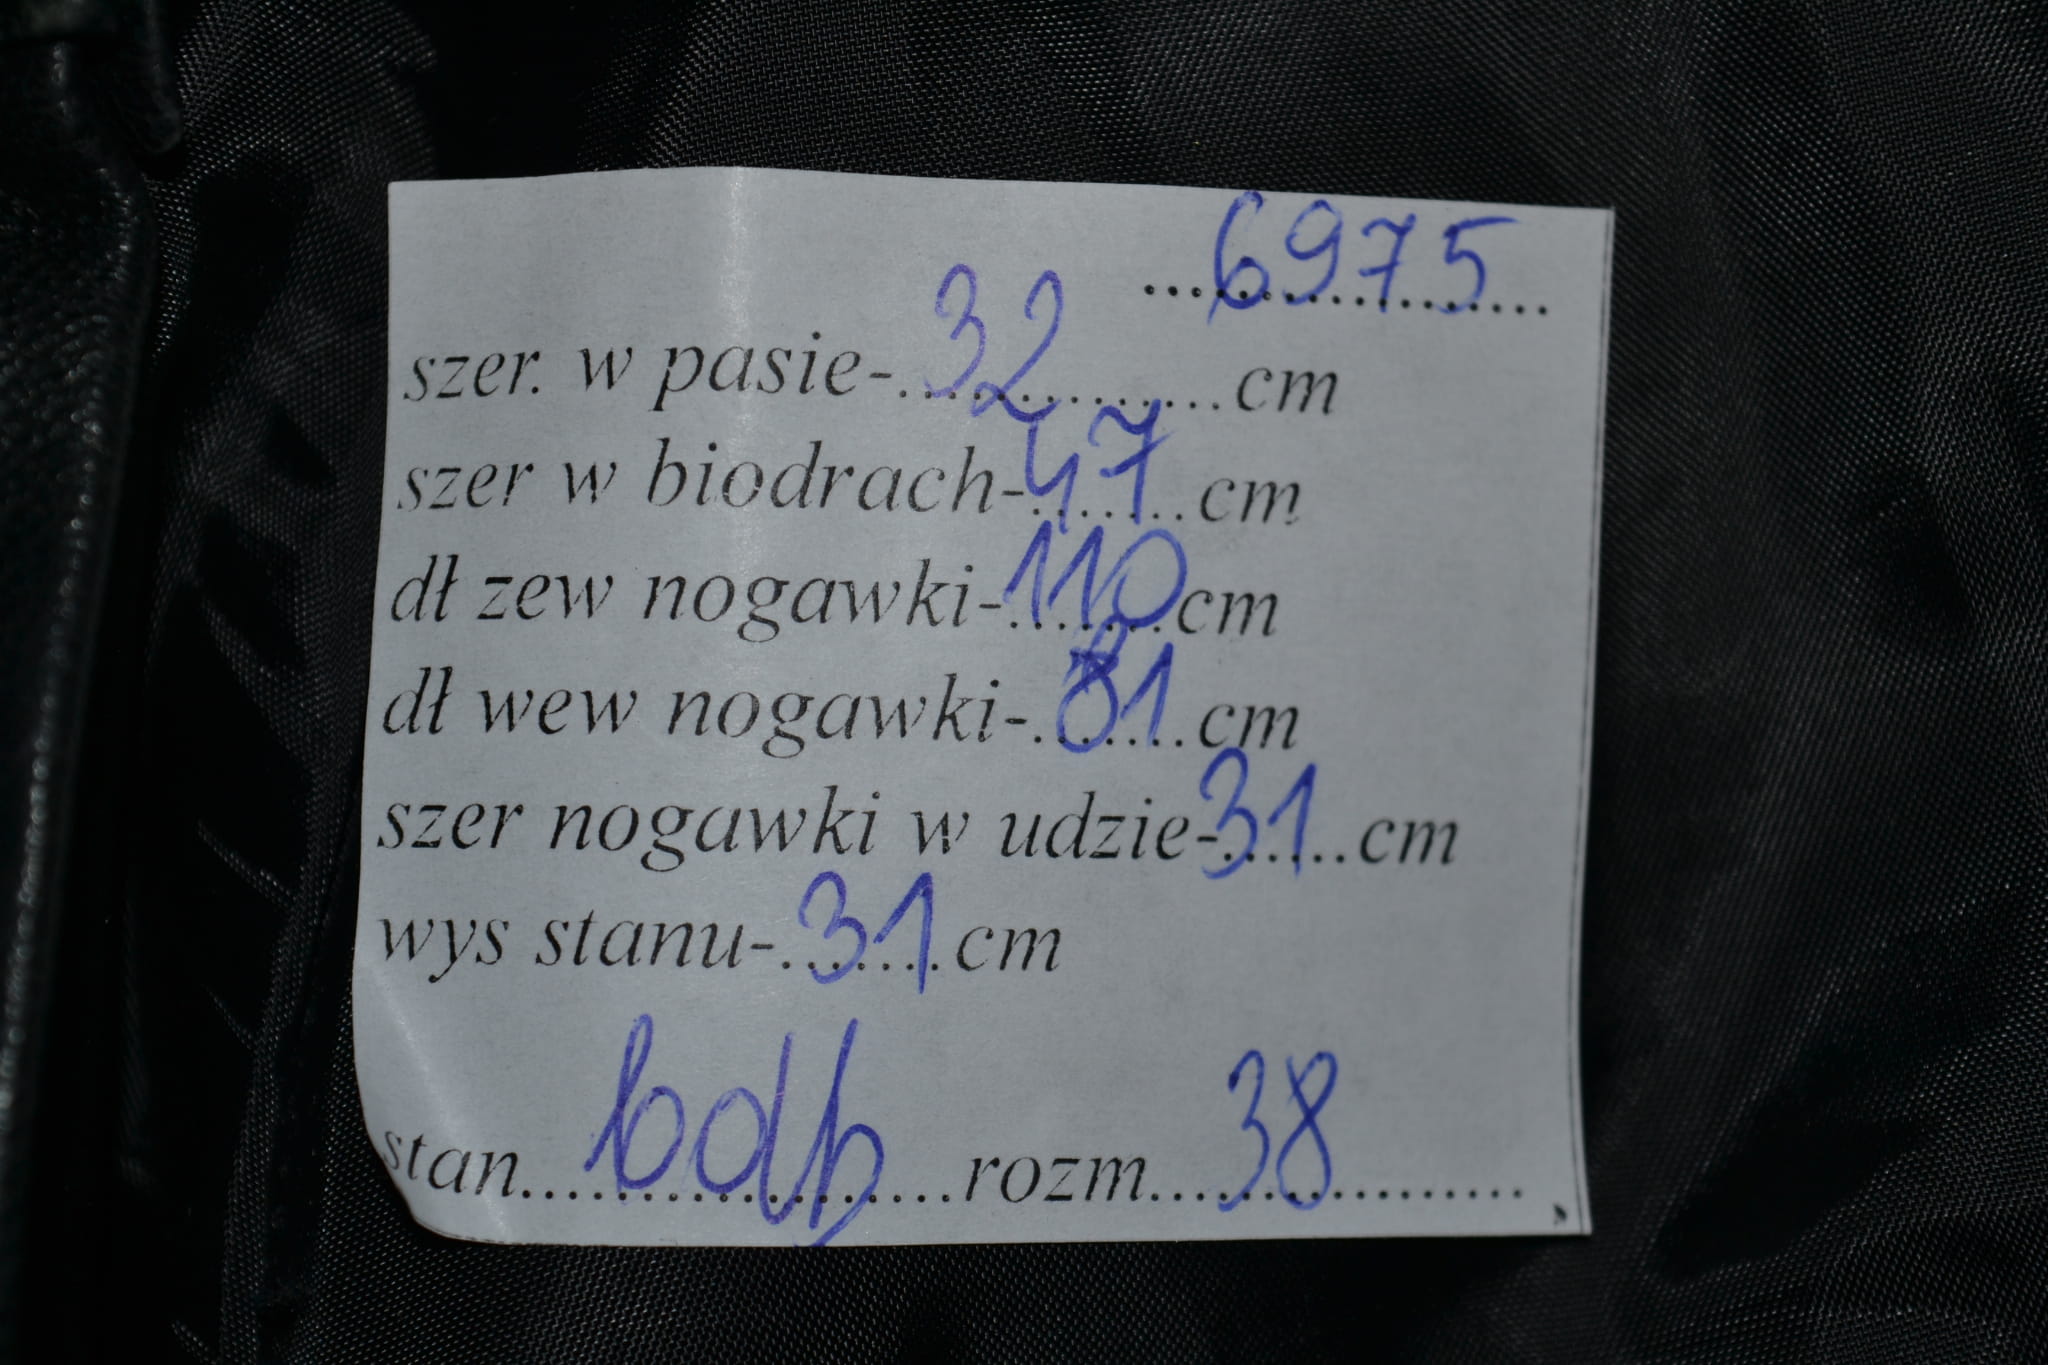 6975
szer. w pasie- 32 cm
szer w biodrach- 47 cm
dł zew nogawki- 110 cm
dł wew nogawki- 81 cm
szer nogawki w udzie- 31 cm
wys stanu- 31 cm
stan bdb rozm 38